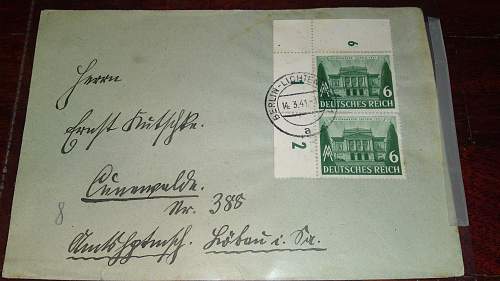 Herrn
Ernst Kutschke.
Cunewalde.
Nr. 388
Amtshptmsch. Löbau i. Sa.
8
6
2
BERLIN-LICHTE
14.3.41
a
6
DEUTSCHES REICH
6
DEUTSCHES REICH